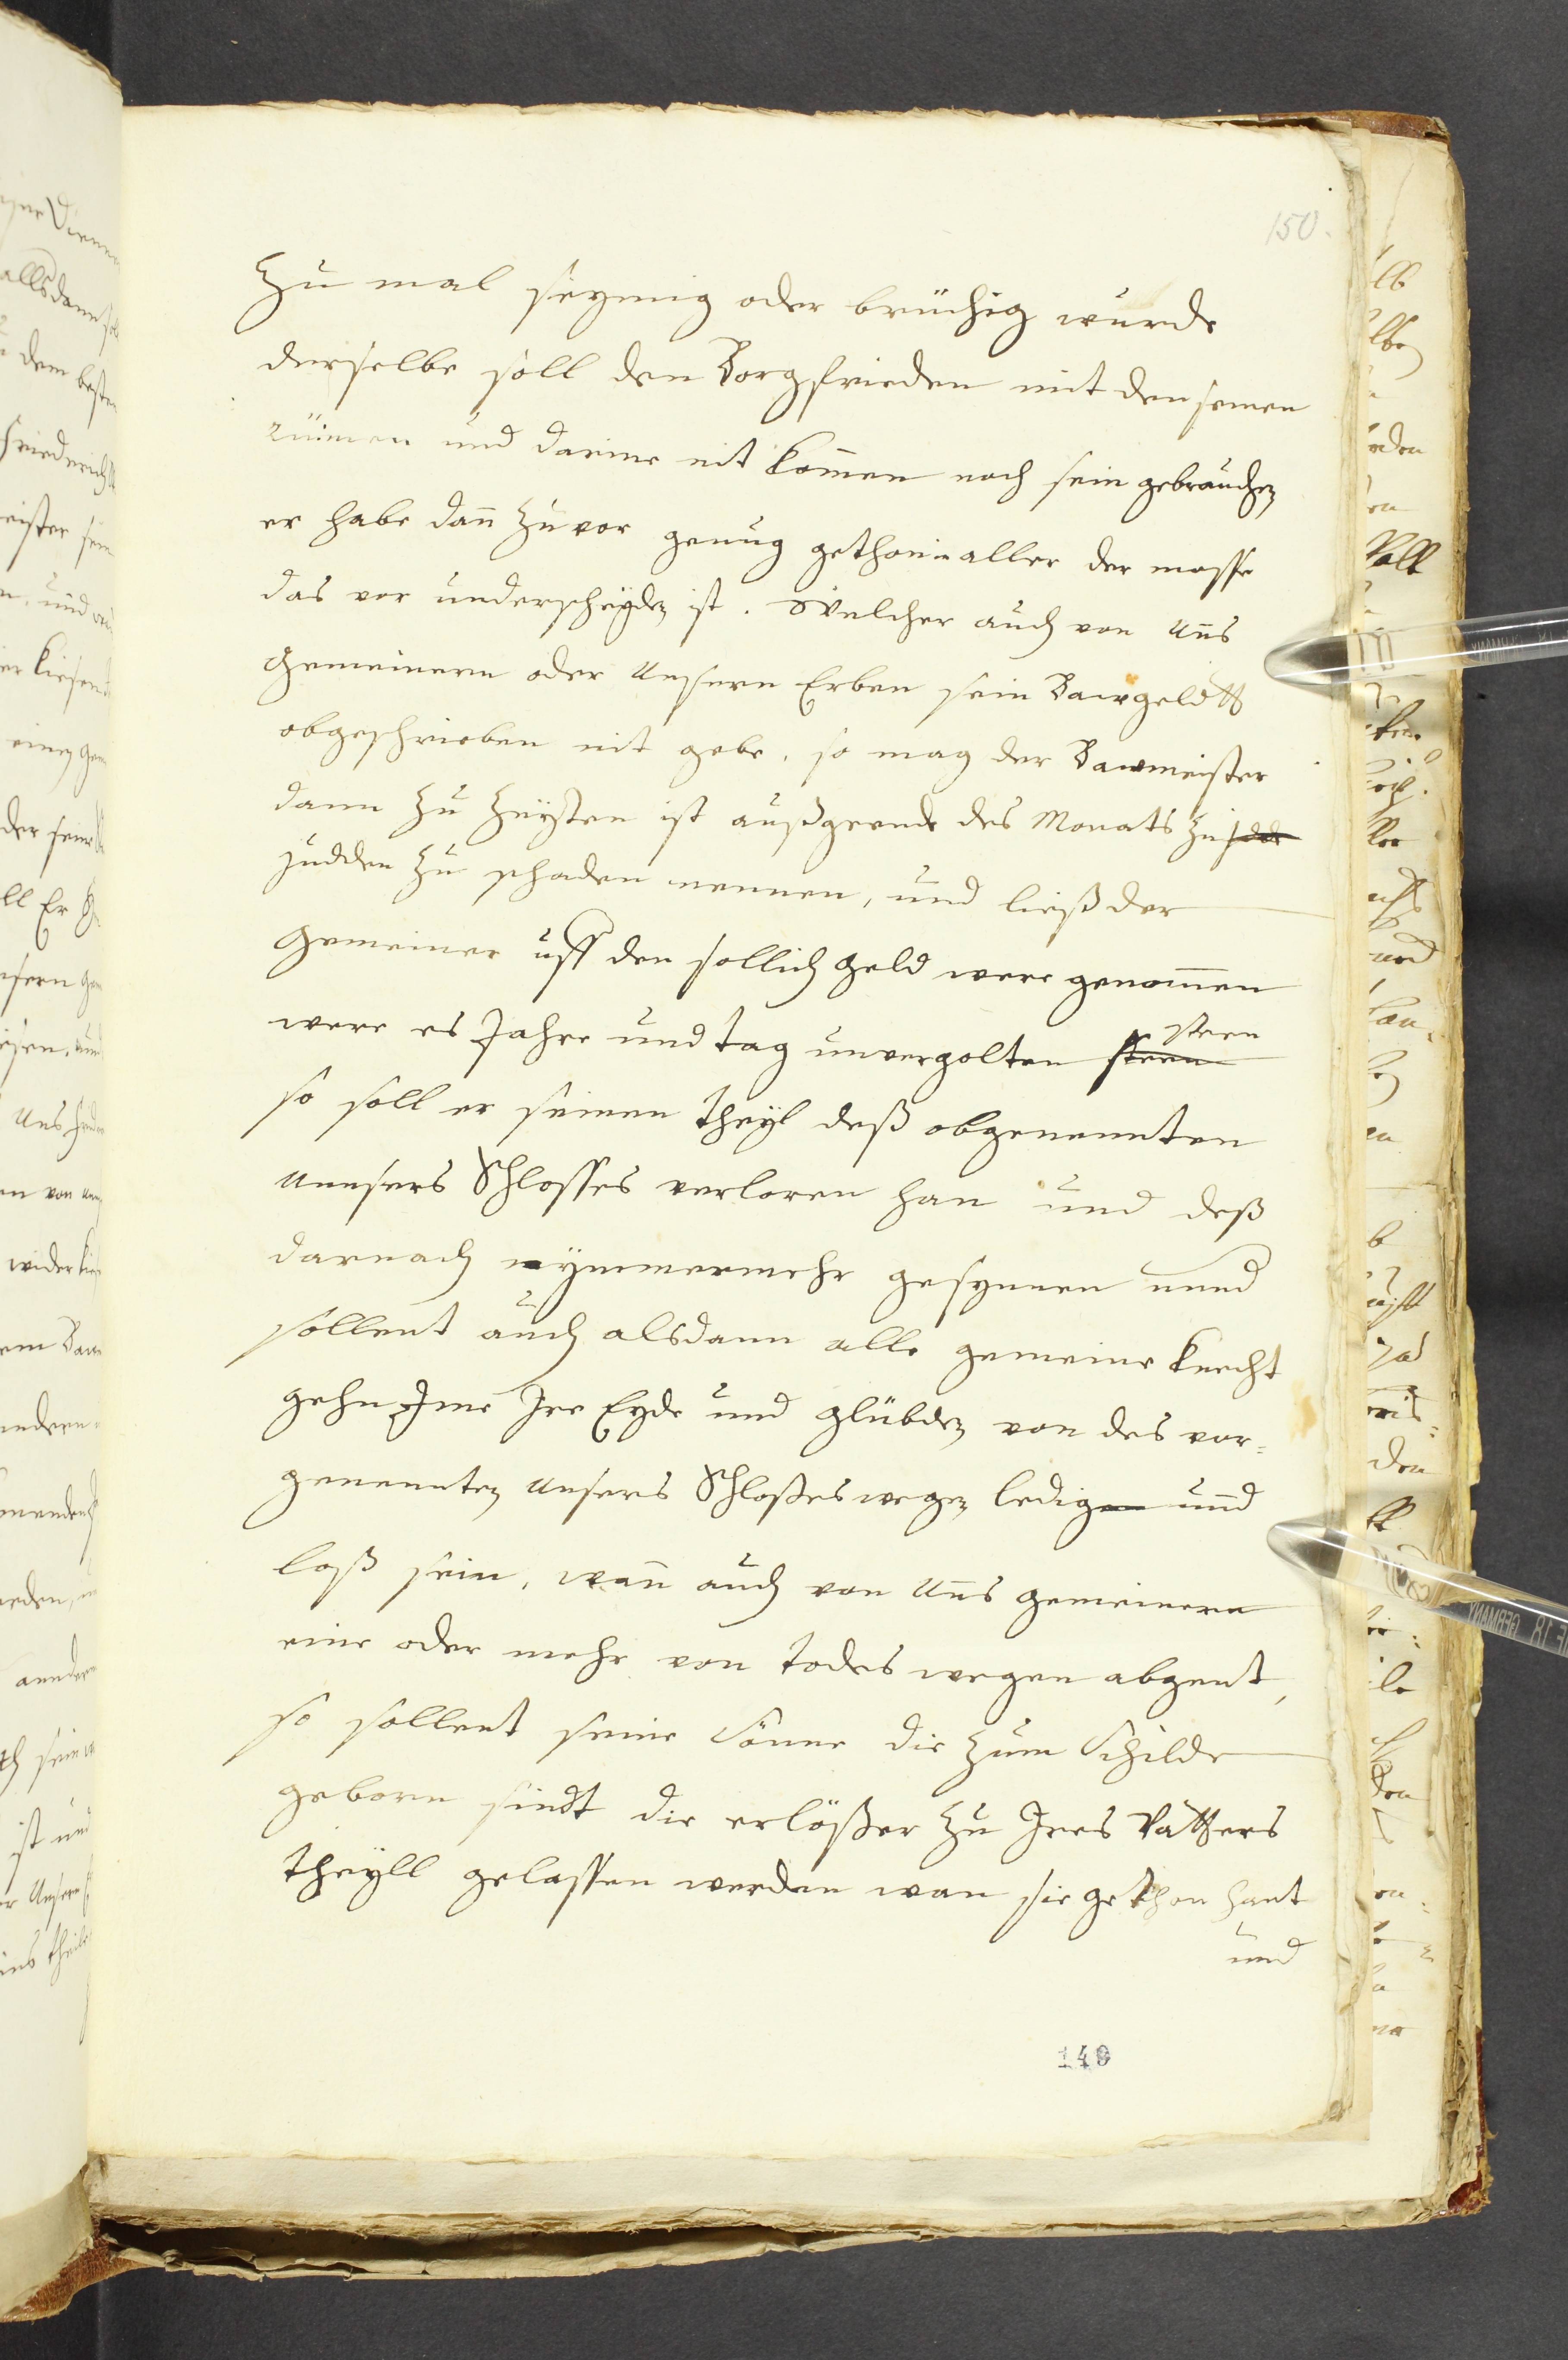 150.
Zu mal seymig oder brüchig wurde
derselbe soll den Borgfrieden mit den seinen
rümen und darine nit komen noch sein gebrauchen
er habe dan zuvor genug gethon in aller der masse
das vor underscheyden ist. Welcher auch von Uns
Gemeinern oder Unsern Erben sein Bawgeldtt
obgeschrieben nit gebe, so mag der Bawmeister
dann zu Zeysten ist außgeende des Monats zu
Judden zu schaden nennen, und ließ der
Gemeiner uff den sollich Geld were genomen
were es Jahre und tag unvergolten steen
so soll er seinen theyl deß obgenennten
Unnsers Schlosses verloren han und deß
darnach nymmermehr gesynnen unnd
sollent auch alsdann alle gemeine knecht
gehn Ime Ire Eyde und glübden von des vor=
genennten Unsers Schloßes wegen ledig und
loß sein, wan auch von Uns gemeinern
eine oder mehr von todes wegen abgent,
so sollent seine Sönne die zum Schilde
geborn sindt die erlößer zu Ires Vatters
theyll gelassen werden wan sie gethon hant
und
149